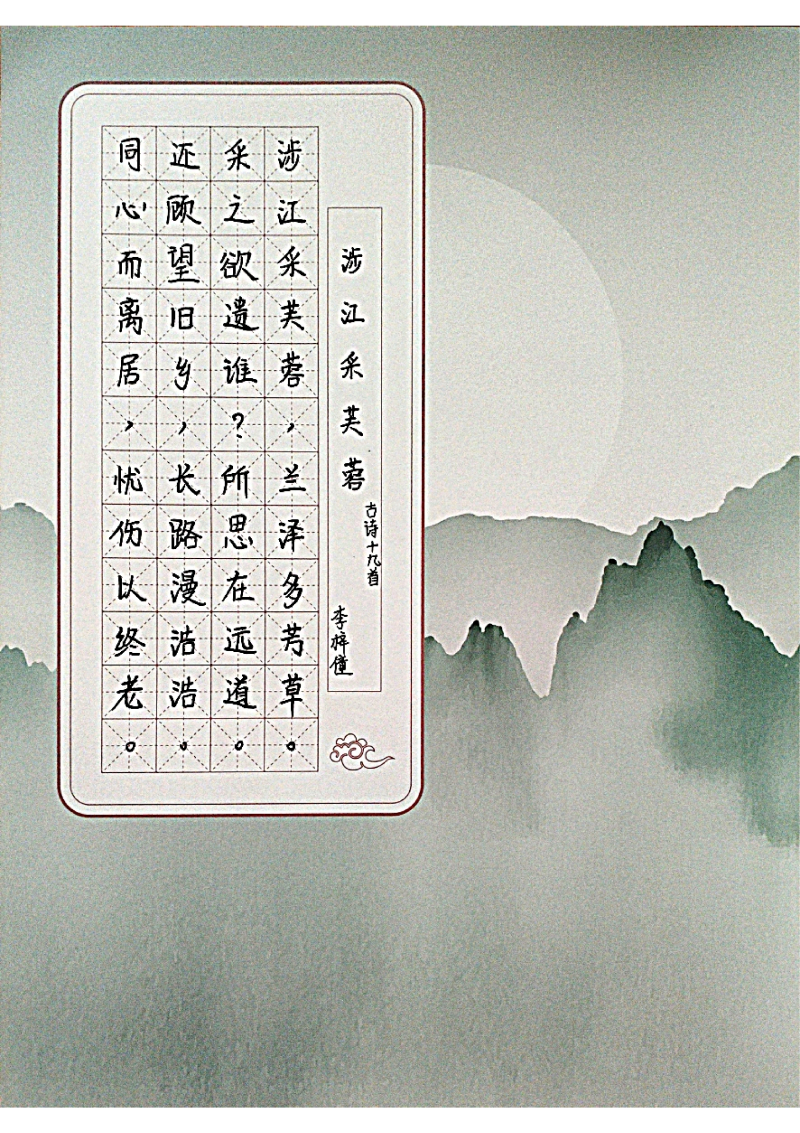 涉江采芙蓉
古诗十九首
李梓僮
涉江采芙蓉，兰泽多芳草。
采之欲遗谁？所思在远道。
还顾望旧乡，长路漫浩浩。
同心而离居，忧伤以终老。